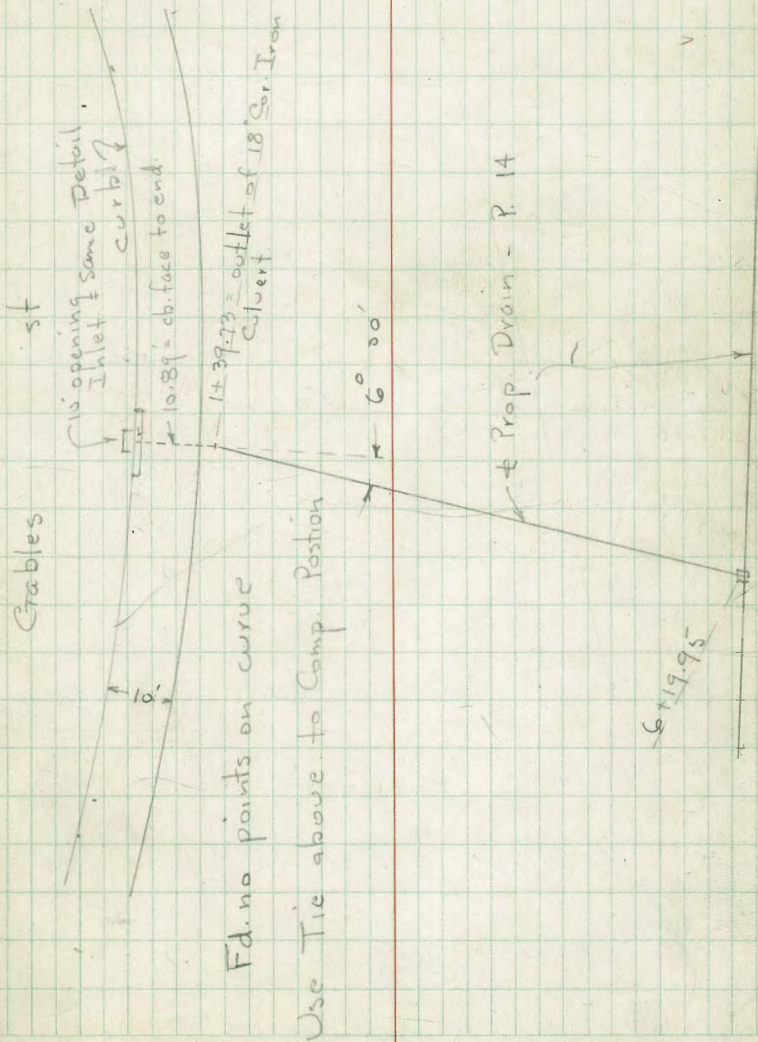 Gables st
10' opening
Inlet & same Detail
curb?
10.89' = cb. face to end.
1+39.73 = outlet of 18" Cor. Iron
Culvert
10'
6° 00'
Fd. no points on curve
Use Tie above to Comp. Postion
Prop. Drain - P. 14
6+19.95